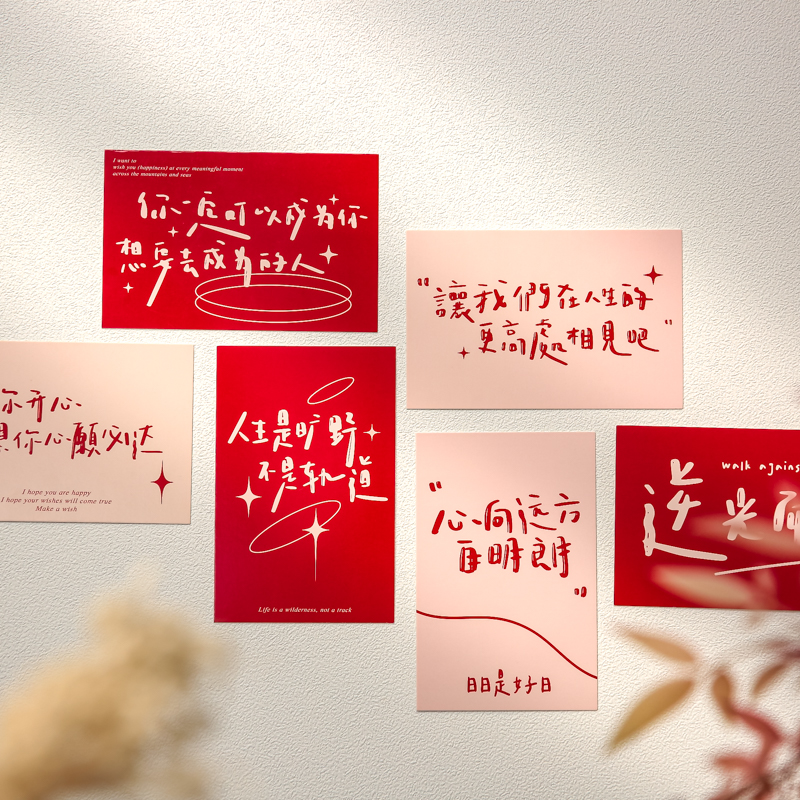 I want to
wish you (happiness) at every meaningful moment
across the mountains and seas
你一定可以成为你
想要去成为的人
"讓我們在人生的
更高處相見吧"
你开心
你心願必达
I hope you are happy
I hope your wishes will come true
Make a wish
人生是旷野
不是轨道
Life is a wilderness, not a track
"心向远方
自明朗"
日日是好日
walk agains
逆光而